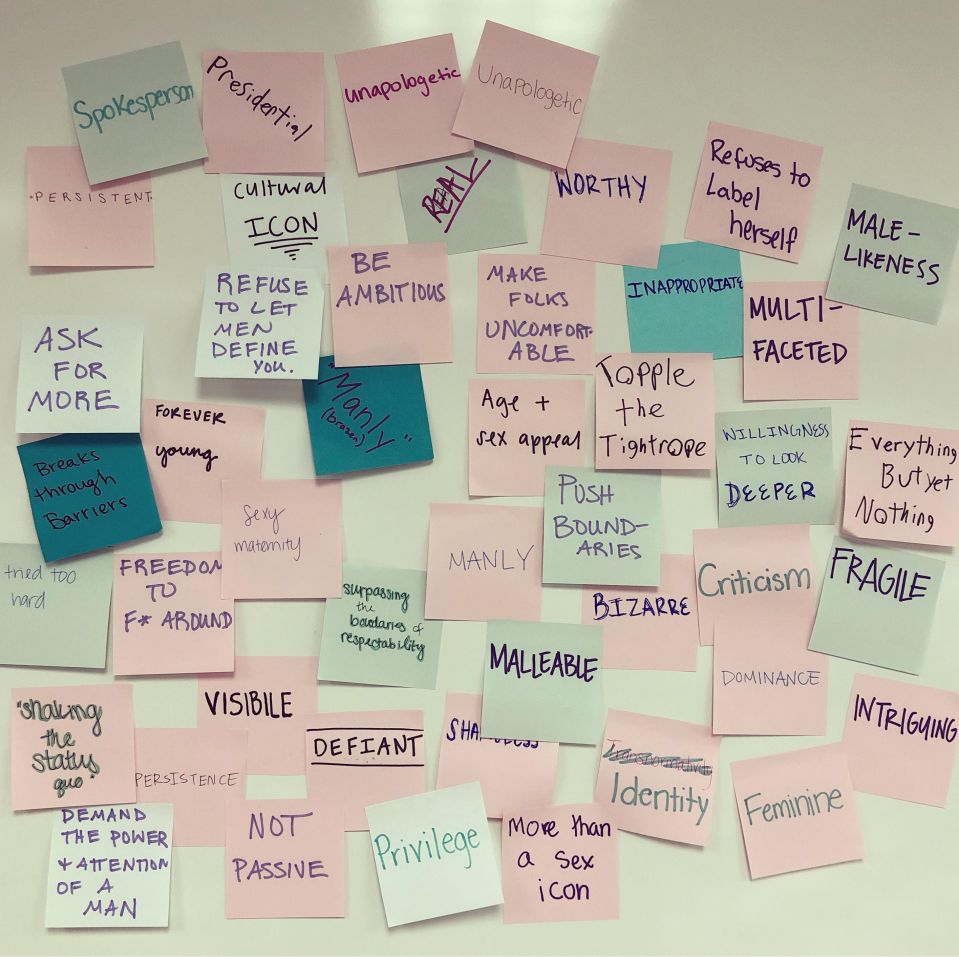 Spokesperson
Presidential
unapologetic
Unapologetic
•PERSISTENT
Cultural
ICON
REAL
WORTHY
Refuses to
Label
herself
MALE-
LIKENESS
REFUSE
TO LET
MEN
DEFINE
YOU.
BE
AMBITIOUS
MAKE
FOLKS
UNCOMFORT-
ABLE
INAPPROPRIATE
MULTI-
FACETED
ASK
FOR
MORE
FOREVER
young
"Manly"
(brazen)
Age +
sex appeal
Topple
the
Tightrope
WILLINGNESS
TO LOOK
DEEPER
Everything
But yet
Nothing
Breaks
through
Barriers
sexy
maternity
MANLY
PUSH
BOUND-
ARIES
tried too
hard
FREEDOM
TO
F* AROUND
surpassing
the
boundaries of
respectability
BIZARRE
Criticism
FRAGILE
MALLEABLE
DOMINANCE
"shaking
the
status
quo"
VISIBILE
PERSISTENCE
DEFIANT
Identity
Feminine
INTRIGUING
DEMAND
THE POWER
+ ATTENTION
OF A
MAN
NOT
PASSIVE
Privilege
More than
a sex
icon